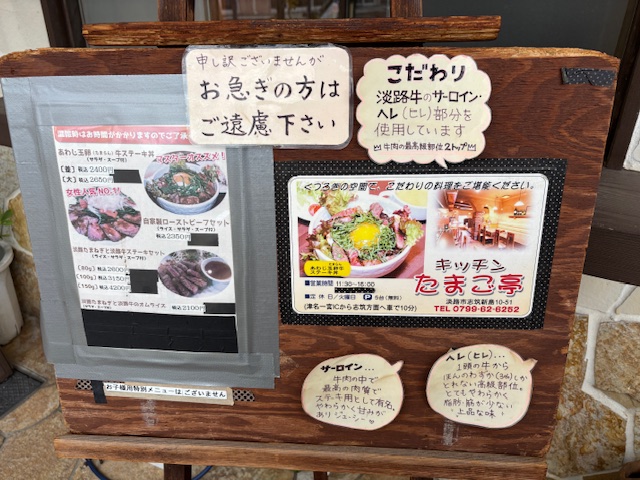 申し訳ございませんが
お急ぎの方は
ご遠慮下さい
こだわり
淡路牛のサーロイン・
ヘレ(ヒレ)部分を
使用しています
牛肉の最高級部位2トップ
調理には お時間がかかりますのでご了承
あわじ玉卵(たまらん)牛ステーキ丼
(サラダ・スープ付)
(並)税込2400円
(大)税込2650円
オーナーオススメ!
女性人気NO.1!
自家製ローストビーフセット
(ライス・サラダ・スープ付)
税込2350円
淡路たまねぎと淡路牛ステーキセット
(ライス・サラダ・スープ付)
(80g)税込2600円
(100g)税込3150円
(150g)税込4200円
淡路たまねぎと淡路牛のオムライス
税込2100円
お子様用特別メニューはございません
くつろぎの空間で、こだわりの料理をご堪能ください。
あわじ玉卵牛
ステーキ丼
キッチン
たまご亭
■営業時間 11:30~15:00
■定休日/火曜日 P5台(無料)
(津名一宮ICから志筑方面へ車で10分)
淡路市志筑新島10-51
TEL 0799-62-6252
サーロイン…
牛肉の中で
最高の肉質で
ステキ用として有名。
やわらかく甘みが
ありジューシー
ヘレ(ヒレ)…
1頭の牛から
ほんのわずか(3%)しか
とれない高級部位。
とてもやわらかく
脂肪・筋が少ない
上品な味